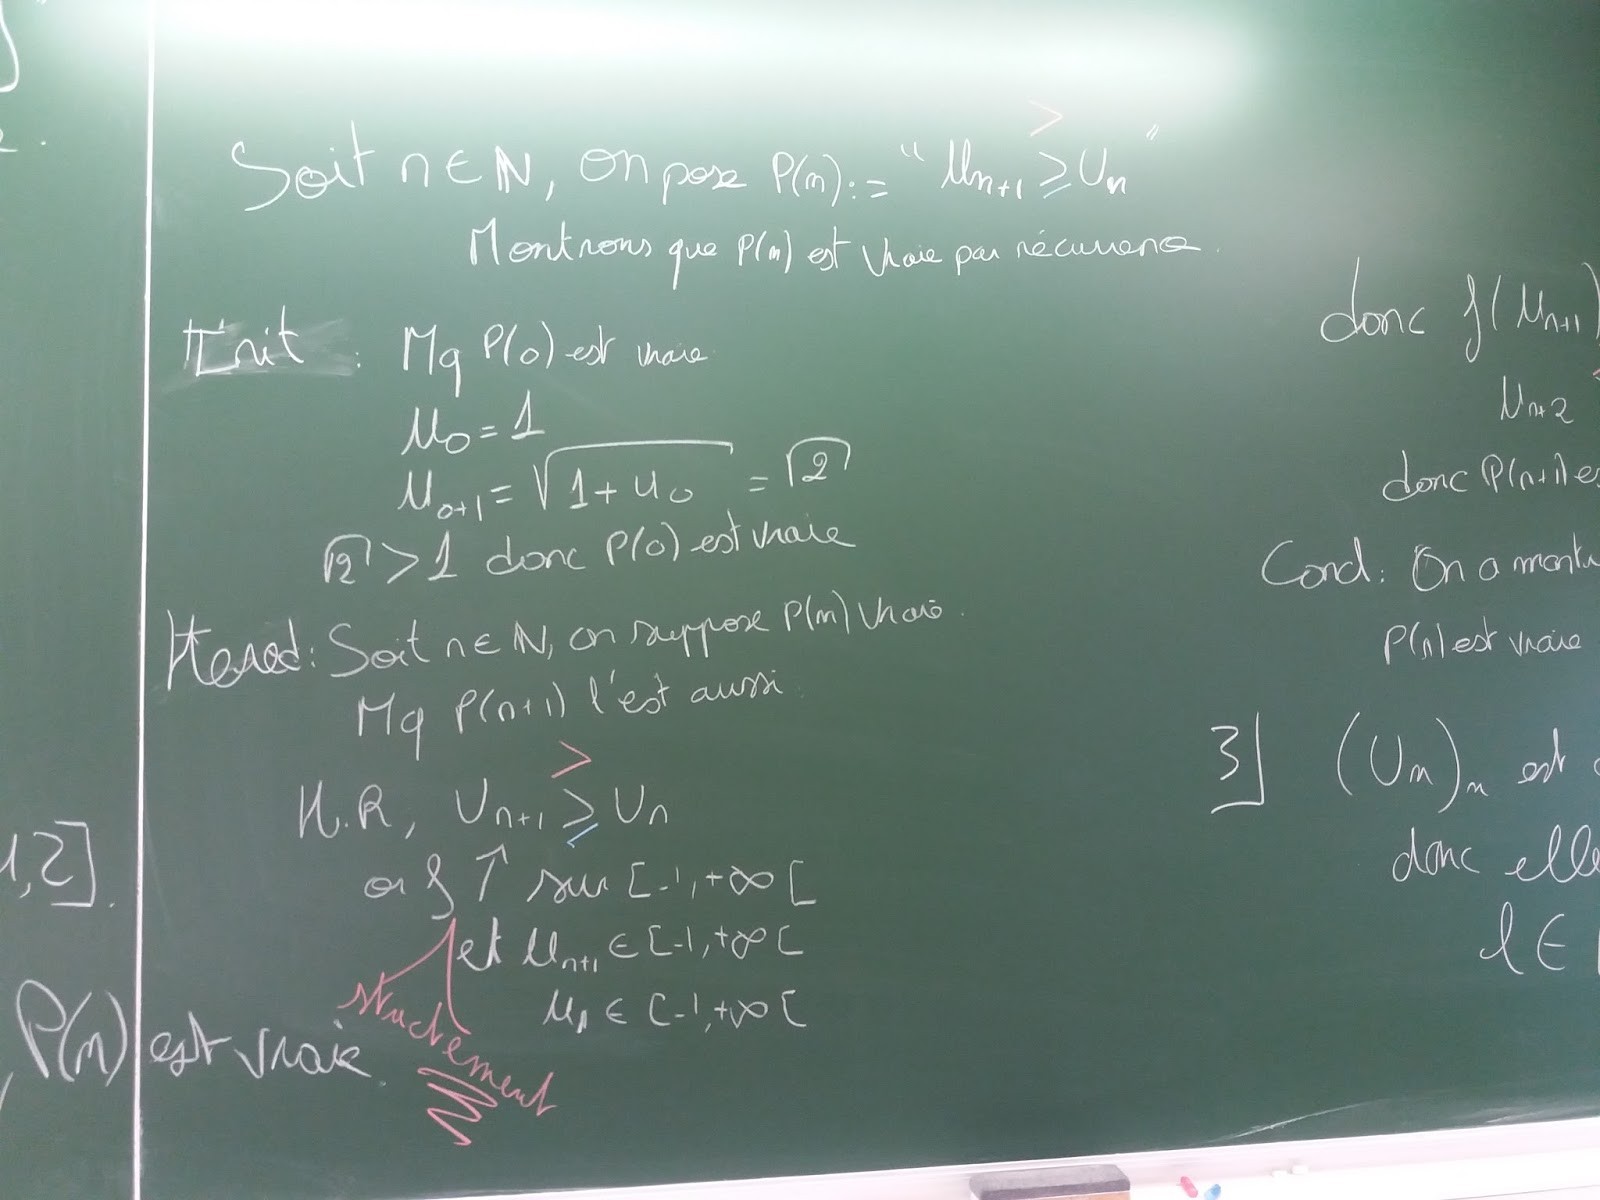 Soit n ∈ ℕ, on pose P(n) := " Un+1 ≥ Un "
>
Montrons que P(n) est vraie par récurrence.
Init : Mq P(0) est vraie
U0 = 1
U0+1 = √(1 + U0) = √2
√2 > 1 donc P(0) est vraie
Hered : Soit n ∈ ℕ, on suppose P(n) vraie.
Mq P(n+1) l'est aussi
>
H.R, Un+1 ≥ Un
or f ↑ sur [-1, +∞ [
et Un+1 ∈ [-1, +∞ [
Un ∈ [-1, +∞ [
strictement
,2].
P(n) est vraie.
donc f(Un+1)
Un+2
donc P(n+1) es
Cond : On a mont
P(n) est vraie
3] (Un)n est
donc elle
l ∈